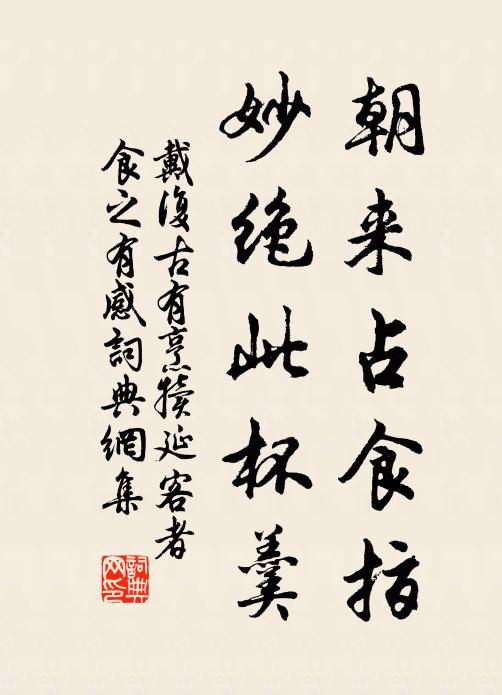 朝来占食指
妙绝此杯羹
戴復古有烹犢延客者
食之有感詞典網集
詞典网印